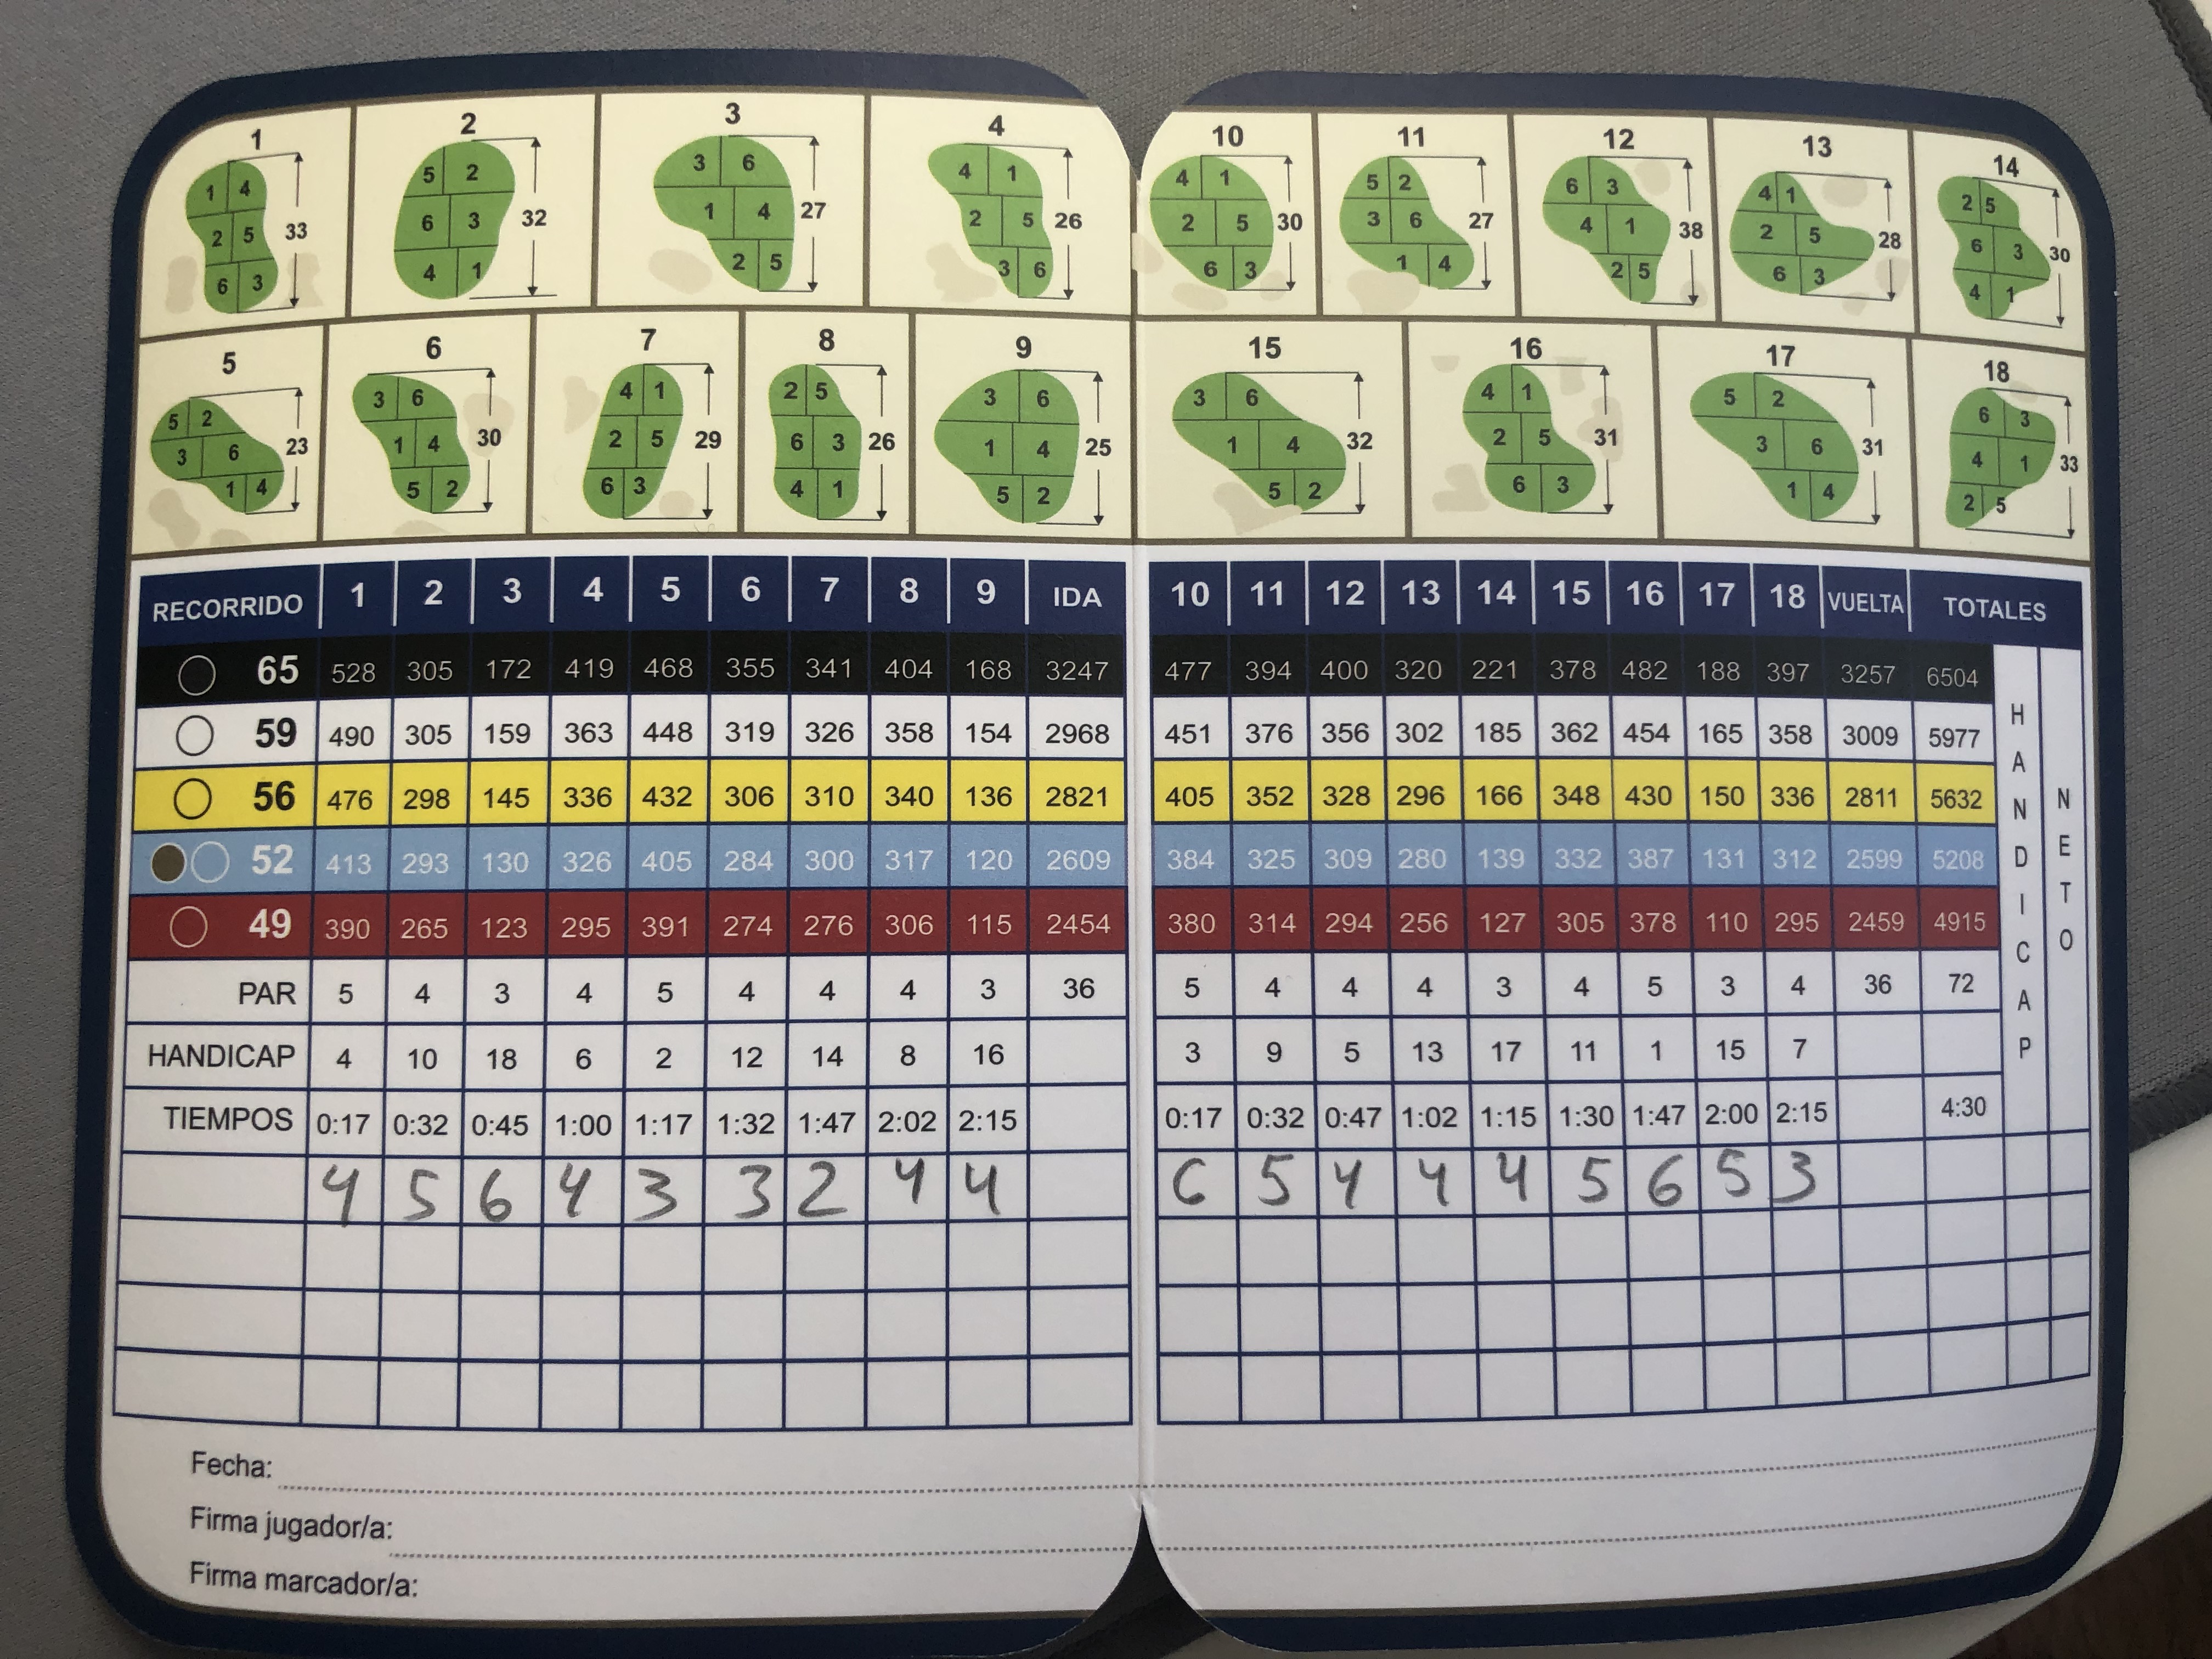 1 2 3 4 10 11 12 13 14
1 4 2 5 6 3 33
5 2 6 3 4 1 32
3 6 1 4 2 5 27
4 1 2 5 3 6 26
4 1 2 5 6 3 30
5 2 3 6 1 4 27
6 3 4 1 2 5 38
4 1 2 5 6 3 28
2 5 6 3 4 1 30
5 6 7 8 9 15 16 17 18
5 2 3 6 1 4 23
3 6 1 4 5 2 30
4 1 2 5 6 3 29
2 5 6 3 4 1 26
3 6 1 4 5 2 25
3 6 1 4 5 2 32
4 1 2 5 6 3 31
5 2 3 6 1 4 31
6 3 4 1 2 5 33
RECORRIDO 1 2 3 4 5 6 7 8 9 IDA 10 11 12 13 14 15 16 17 18 VUELTA TOTALES
65 528 305 172 419 468 355 341 404 168 3247 477 394 400 320 221 378 482 188 397 3257 6504
59 490 305 159 363 448 319 326 358 154 2968 451 376 356 302 185 362 454 165 358 3009 5977
56 476 298 145 336 432 306 310 340 136 2821 405 352 328 296 166 348 430 150 336 2811 5632
52 413 293 130 326 405 284 300 317 120 2609 384 325 309 280 139 332 387 131 312 2599 5208
49 390 265 123 295 391 274 276 306 115 2454 380 314 294 256 127 305 378 110 295 2459 4915
PAR 5 4 3 4 5 4 4 4 3 36 5 4 4 4 3 4 5 3 4 36 72
HANDICAP 4 10 18 6 2 12 14 8 16 3 9 5 13 17 11 1 15 7
TIEMPOS 0:17 0:32 0:45 1:00 1:17 1:32 1:47 2:02 2:15 0:17 0:32 0:47 1:02 1:15 1:30 1:47 2:00 2:15 4:30
HANDICAP
NETO
4 5 6 4 3 3 2 4 4 6 5 4 4 4 5 6 5 3
Fecha:
Firma jugador/a:
Firma marcador/a: